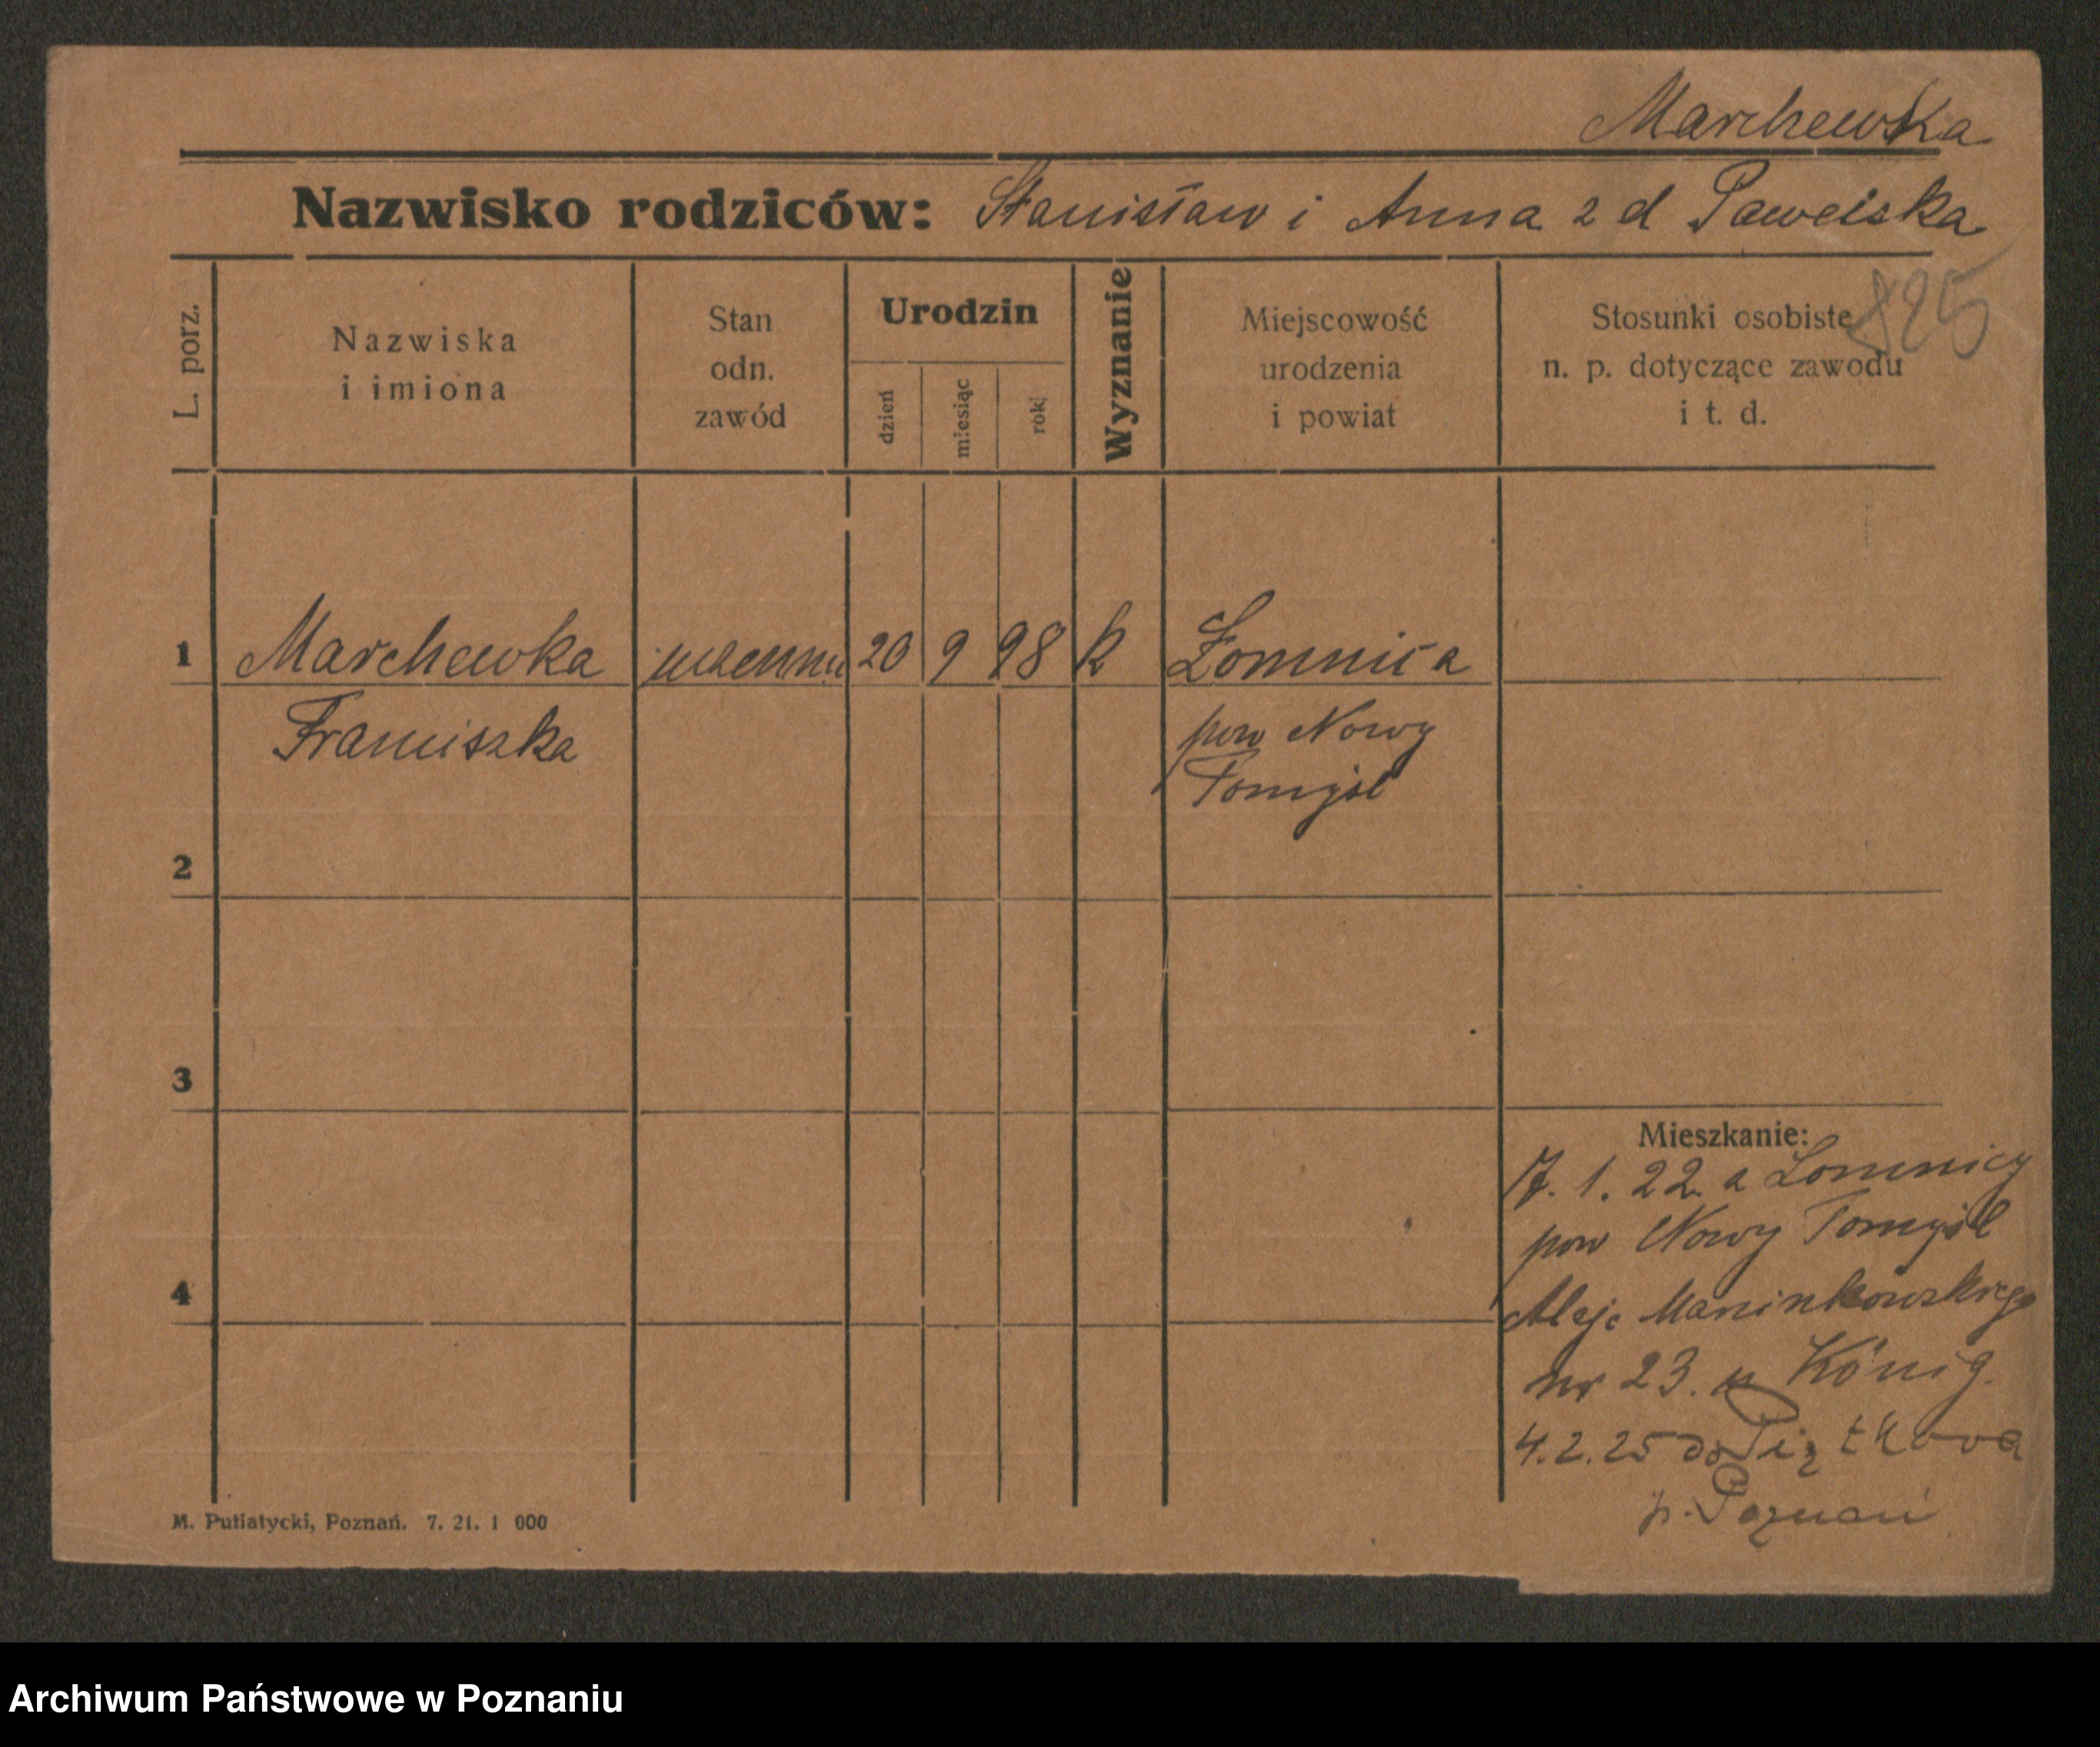 Marchewka
Nazwisko rodziców: Stanisław i Anna z d Pawelska
825
L. porz.
Nazwiska
i imiona
Stan
odn.
zawód
Urodzin
dzień
miesiąc
rok
Wyznanie
Miejscowość
urodzenia
i powiat
Stosunki osobiste
n. p. dotyczące zawodu
i t. d.
1 Marchewka 20 9 98 k Łomnica
Franciszka pow Nowy
Tomyśl
2
3
Mieszkanie:
17. 1. 22 z Łomnicy
pow Nowy Tomyśl
4
Aleje Marcinkowskiego
nr 23. u König.
4.2.25 do Piątkowa
p. Poznań
M. Putiatycki, Poznań. 7. 21. 1 000
Archiwum Państwowe w Poznaniu